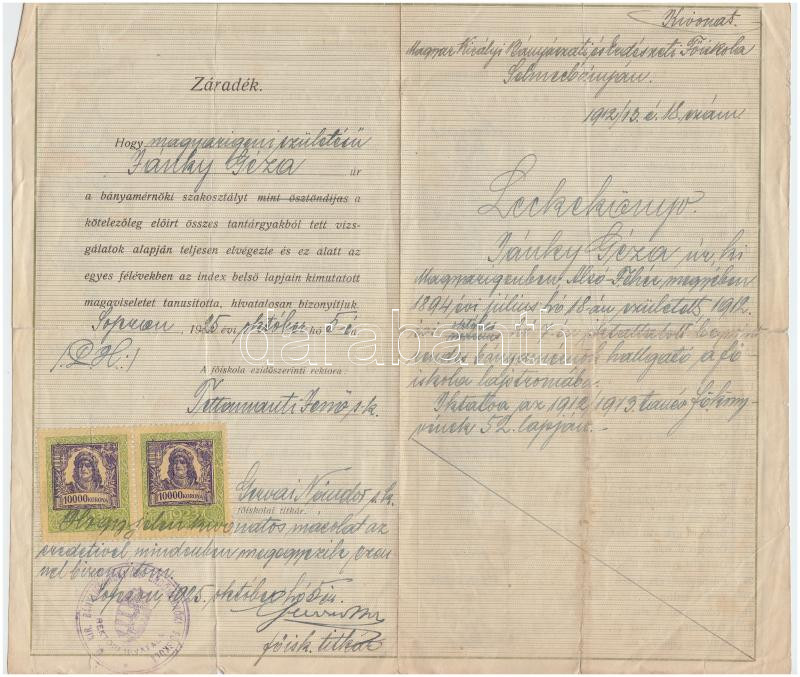 Záradék.
Hogy magyarigeni születésü
Jánky Géza úr
a bányamérnöki szakosztályt mint ösztöndijas a
kötelezőleg előirt összes tantárgyakból tett vizs-
gálatok alapján teljesen elvégezte és ez alatt az
egyes félévekben az index belső lapjain kimutatott
magaviseletet tanusitotta, hivatalosan bizonyitjuk.
Sopron, 1925 évi október hó 5-én
/:P.H.:/
A főiskola ezidőszerinti rektora:
Jenő s.k.
Gervai Nándor s.k.
főiskolai titkár.
10000 KORONA
10000 KORONA
Hogy jelen kivonatos másolat az
eredetivel mindenben megegyezik, ezen-
nel bizonyitom.
Sopron, 1925. október hó 5-én.
főisk. titkár
Kivonat.
Magyar Királyi Bányászati és Erdészeti Főiskola
Selmecbányán.
1912/13. é. 18. szám
Leckekönyv.
Jánky Géza úr, ki
Magyarigenben, Alsó-Fehér megyében
1894 évi július hó 18-án született, 1912.
évi október
rendes bányamérnök hallgató a fő-
iskola lajstromába.
Iktatva az 1912/1913. tanév főköny-
vének 52. lapján.-
darabanth